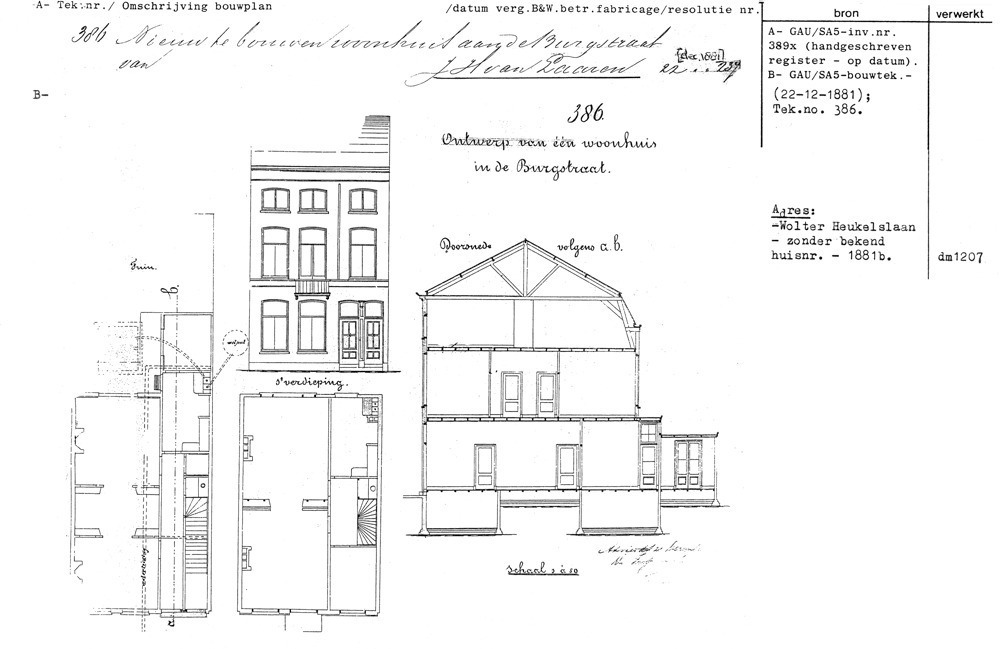 A- Tek.nr./ Omschrijving bouwplan
/datum verg.B&W.betr.fabricage/resolutie nr.
bron
verwerkt
386 Nieuw te bouwen woonhuis aan de Burgstraat
van J H van
[dec. 1881]
22
A- GAU/SA5-inv.nr.
389x (handgeschreven
register - op datum).
B- GAU/SA5-bouwtek.-
(22-12-1881);
Tek.no. 386.
B-
386.
Ontwerp van één woonhuis
in de Burgstraat.
Adres:
-Wolter Heukelslaan
- zonder bekend
huisnr. - 1881b.
dm1207
Doorsnede volgens a.b.
Tuin.
b.
1e verdieping.
a
Schaal 1 à 50